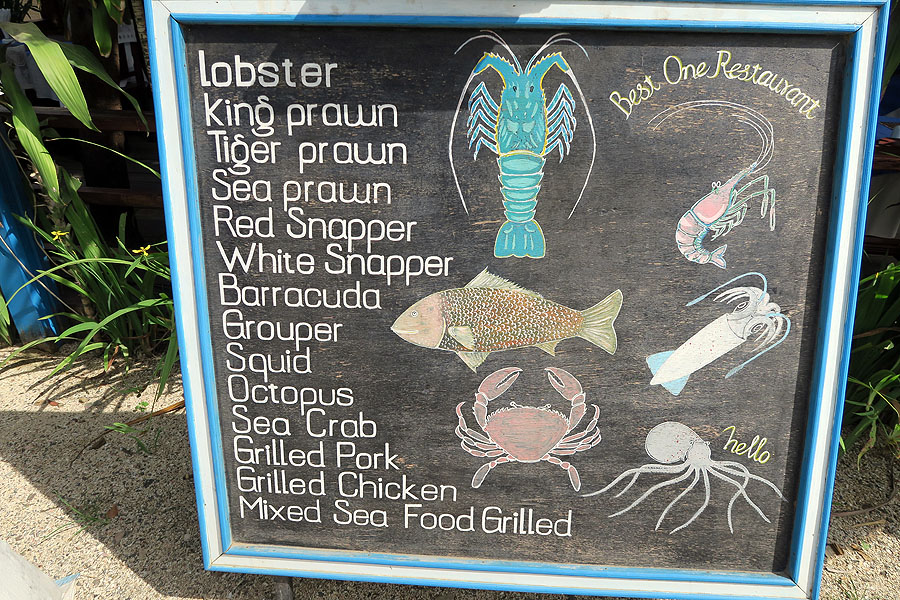 Lobster
King prawn
Tiger prawn
Sea prawn
Red Snapper
White Snapper
Barracuda
Grouper
Squid
Octopus
Sea Crab
Grilled Pork
Grilled Chicken
Mixed Sea Food Grilled
Best One Restaurant
hello